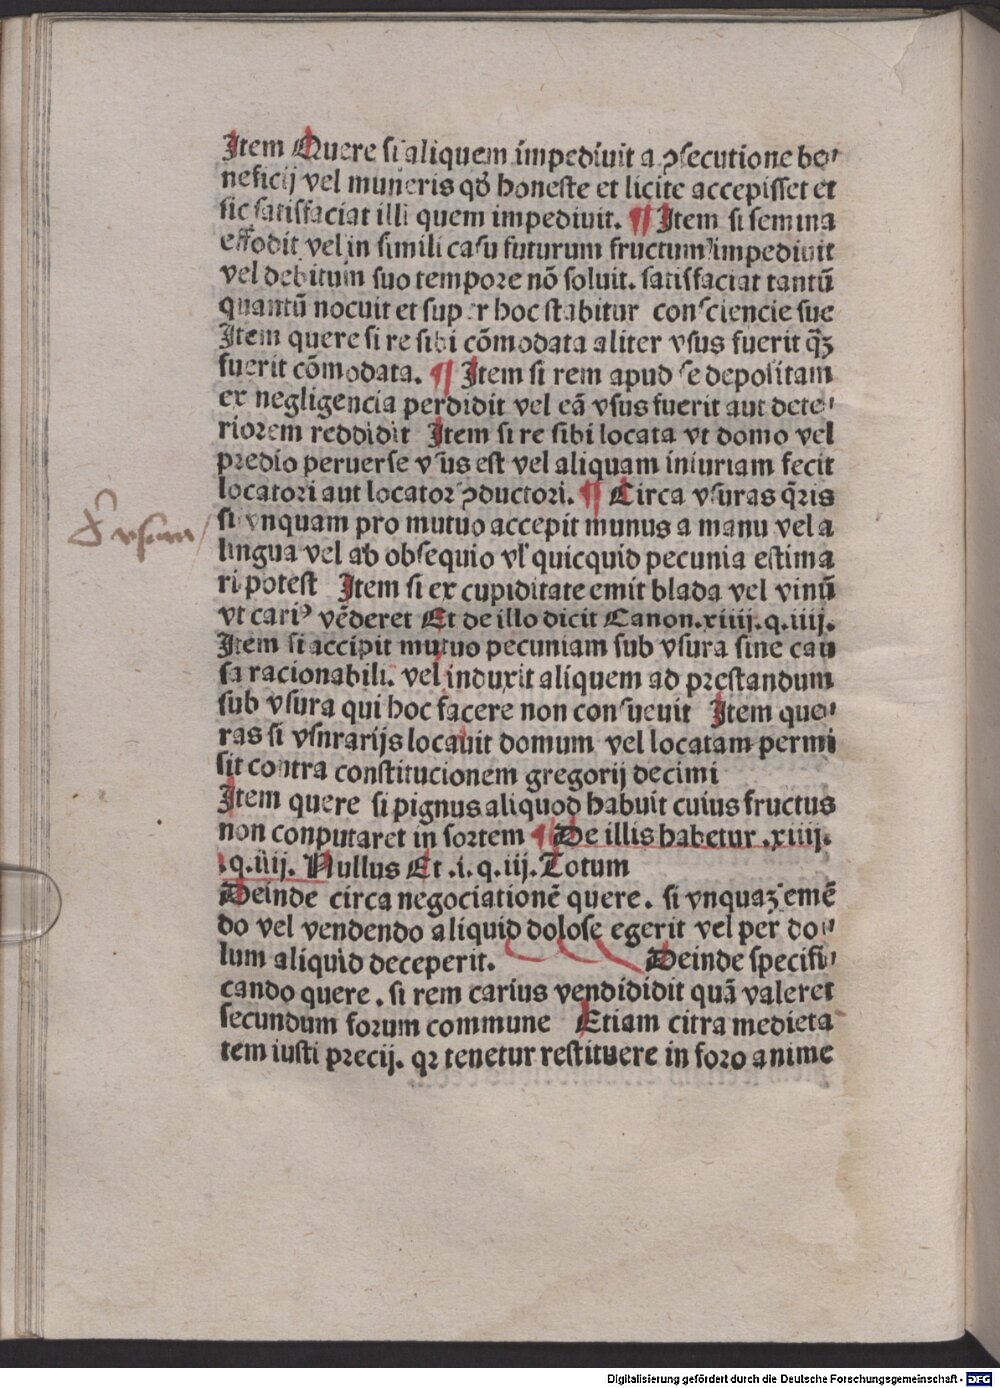 Item Quere si aliquem impediuit a ꝓsecutione be⸗
neficij vel muneris qd̓ honeste et licite accepisset et
sic satisfaciat illi quem impediuit. ¶ Item si semina
effodit vel in simili casu futurum fructum impediuit
vel debitum suo tempore nō soluit. satisfaciat tantū
quantū nocuit et super hoc stabitur consciencie sue
Item quere si re sibi cōmodata aliter vsus fuerit qȝ̄
fuerit cōmodata. ¶ Item si rem apud se depositam
ex negligencia perdidit vel eā vsus fuerit aut dete⸗
riorem reddidit Item si re sibi locata vt domo vel
predio peruerse vsus est vel aliquam iniuriam fecit
locatori aut locator ꝯductori. ¶ Circa vsuras q̄ris
si vnquam pro mutuo accepit munus a manu vel a
lingua vel ab obsequio vl̓ quicquid pecunia estima
ri potest Item si ex cupiditate emit blada vel vinū
vt cariꝰ vēderet Et de illo dicit Canon.xiiij.q.iiij.
Item si accipit mutuo pecuniam sub vsura sine cau
sa racionabili. vel induxit aliquem ad prestandum
sub vsura qui hoc facere non consueuit Item que⸗
ras si vsnrarijs locauit domum vel locatam permi
sit contra constitucionem gregorij decimi
Item quere si pignus aliquod habuit cuius fructus
non conputaret in sortem ¶ De illis habetur .xiiij.
.q.iiij. Nullus Et .i.q.iij.Totum
Deinde circa negociationē quere. si vnquaȝ emē
do vel vendendo aliquid dolose egerit vel per do⸗
lum aliquid deceperit. Deinde specifi⸗
cando quere. si rem carius vendididit quā valeret
secundum forum commune Etiam citra medieta
tem iusti precij. qꝛ tenetur restituere in foro anime
vsura
Digitalisierung gefördert durch die Deutsche Forschungsgemeinschaft - DFG